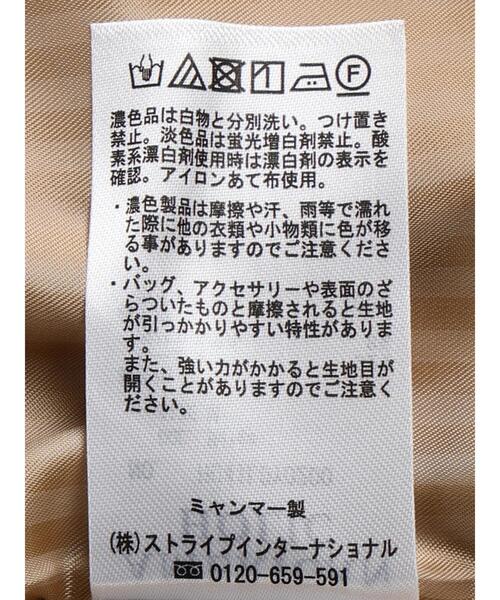 濃色品は白物と分別洗い。つけ置き
禁止。淡色品は蛍光増白剤禁止。酸
素系漂白剤使用時は漂白剤の表示を
確認。アイロンあて布使用。
・濃色製品は摩擦や汗、雨等で濡れ
た際に他の衣類や小物類に色が移
る事がありますのでご注意くださ
い。
・バッグ、アクセサリーや表面のざ
らついたものと摩擦されると生地
が引っかかりやすい特性がありま
す。
また、強い力がかかると生地目が
開くことがありますのでご注意く
ださい。
ミャンマー製
(株)ストライプインターナショナル
0120-659-591